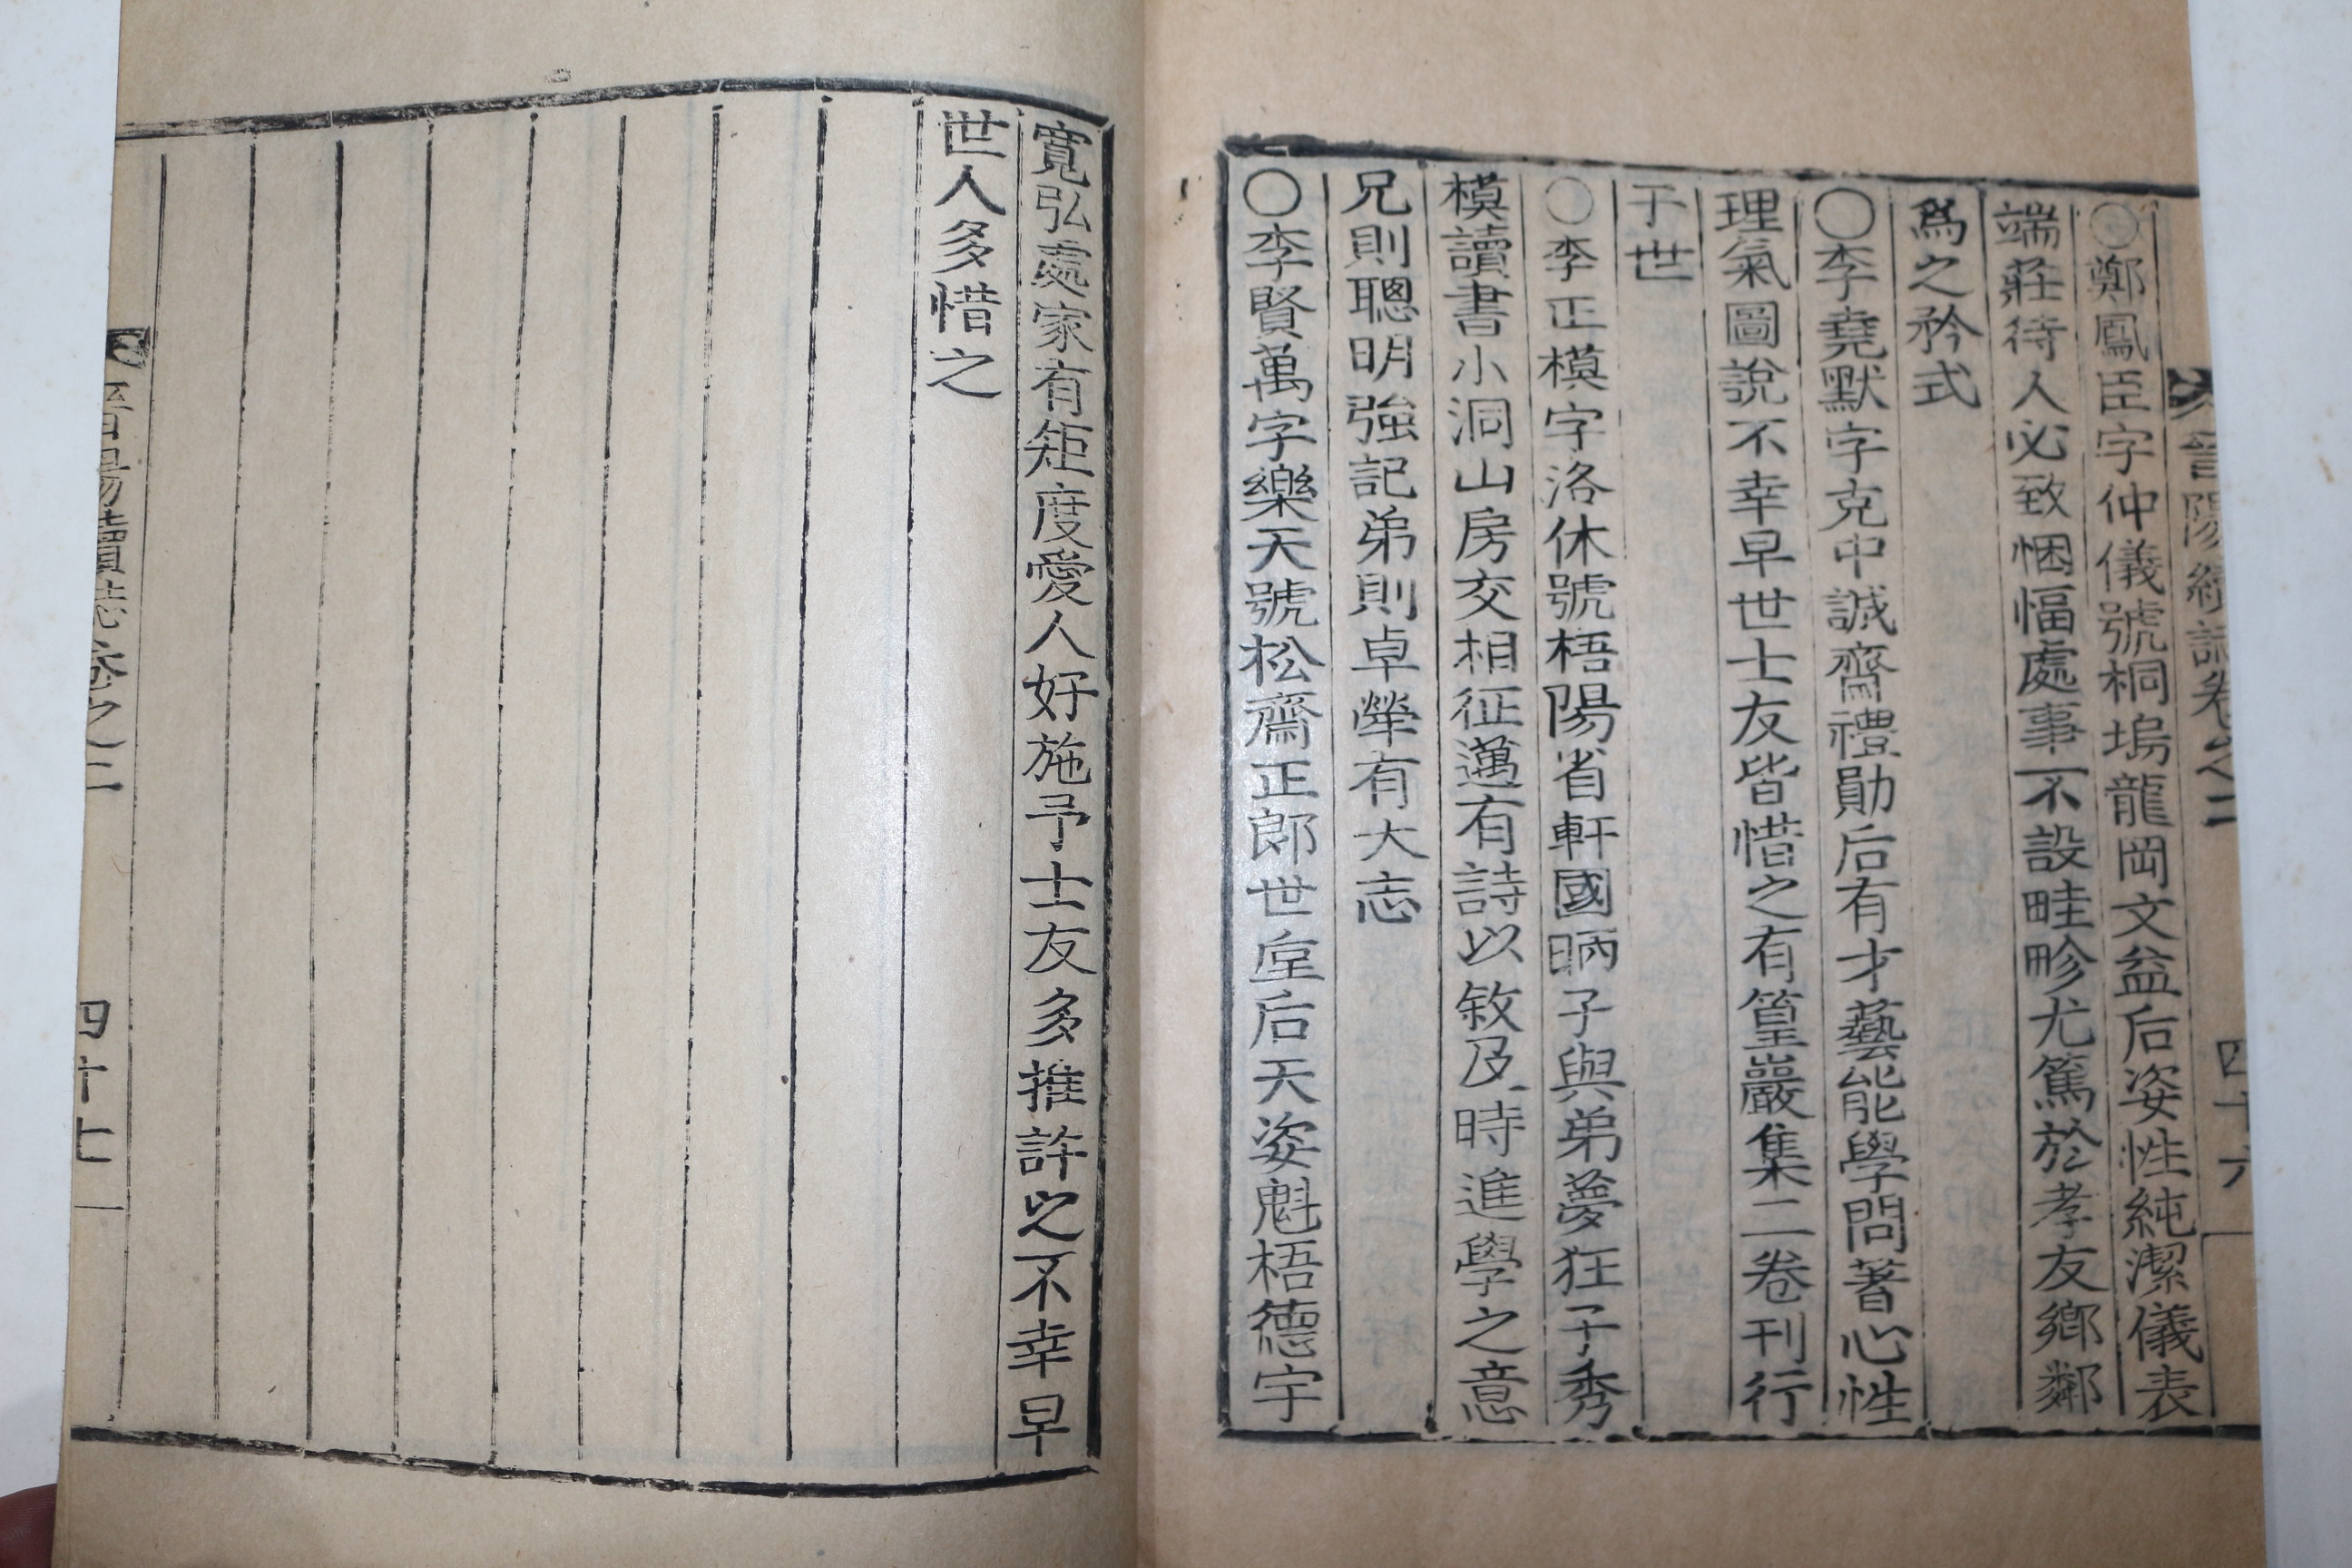 晉陽續誌卷之二 四十六
○鄭鳳臣字仲儀號桐塢龍岡文益后姿性純潔儀表
端莊待人必致悃愊處事不設畦畛尤篤於孝友鄕鄰
爲之矜式
○李堯默字克中誠齋禮勛后有才藝能學問著心性
理氣圖說不幸早世士友皆惜之有篁巖集二卷刊行
于世
○李正模字洛休號梧陽省軒國昞子與弟夢狂子秀
模讀書小洞山房交相征邁有詩以敘及時進學之意
兄則聰明強記弟則卓犖有大志
○李賢萬字樂天號松齋正郎世垕后天姿魁梧德宇
寬弘處家有矩度愛人好施予士友多推許之不幸早
世人多惜之
晉陽續誌卷之二 四十七